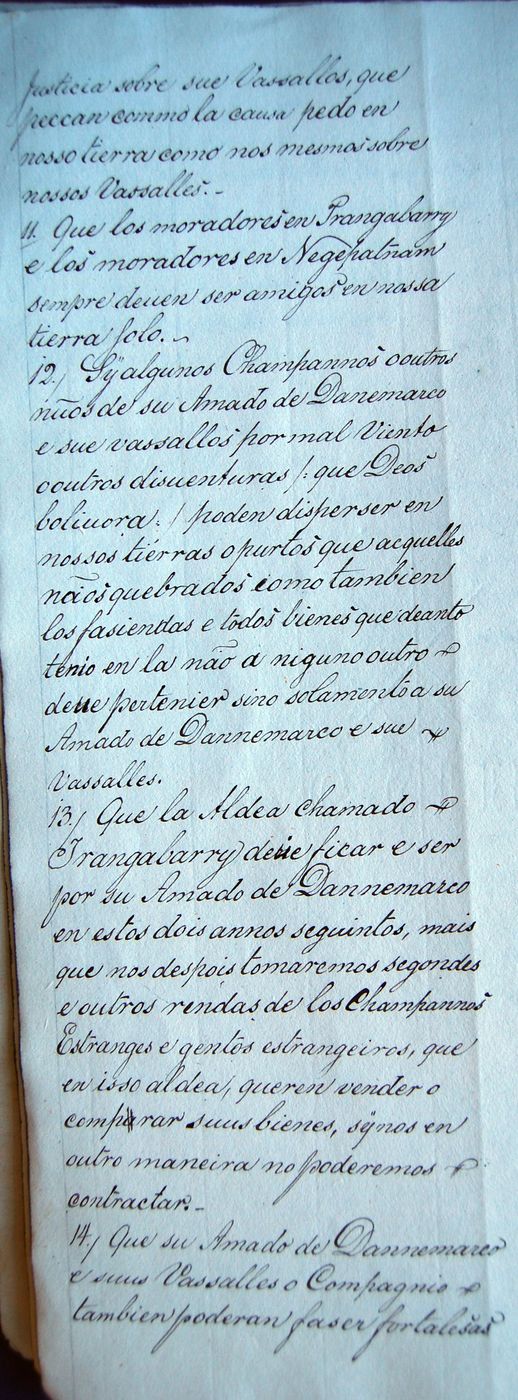 Justicia sobre sue Vassallos, que
peccan commo la causa pedo en
nosso tierra como nos mesmos sobre
nossos Vassalles.-
11. Que los moradores en Trangabarry
e los moradores en Negepatnam
sempre deuen ser amigos en nossa
tierra solo.
12./ Sÿ algunos Champannos o outros
nũos de su Amado de Danemarco
e sue vassallos por mal Viento
o outros disuenturas /: que Deos
boliuora :/ poden disperser en
nossos tiérras o purtos que acquelles
nãos quebrados como tambien
los fasiendas e todos bienes que deanto
tenio en la não a niguno outro
deue pertenier sino solamento a su
Amado de Dannemarco e sue
Vassalles.
13./ Que la Aldea chamado
Trangabarry deue ficar e ser
por su Amado de Dannemarco
en estos dois annos seguintos, mais
que nos despois tomaremos segondes
e outros rendas de los Champannos
Estranges e gentos estrangeiros, que
en isso aldea, queren vender o
comparar suus bienes, sÿnos en
outro maneira no poderemos
contractar.-
14./ Que su Amado de Dannemarco
e suus Vassalles o Compagnio
tambien poderan faser fortalesas